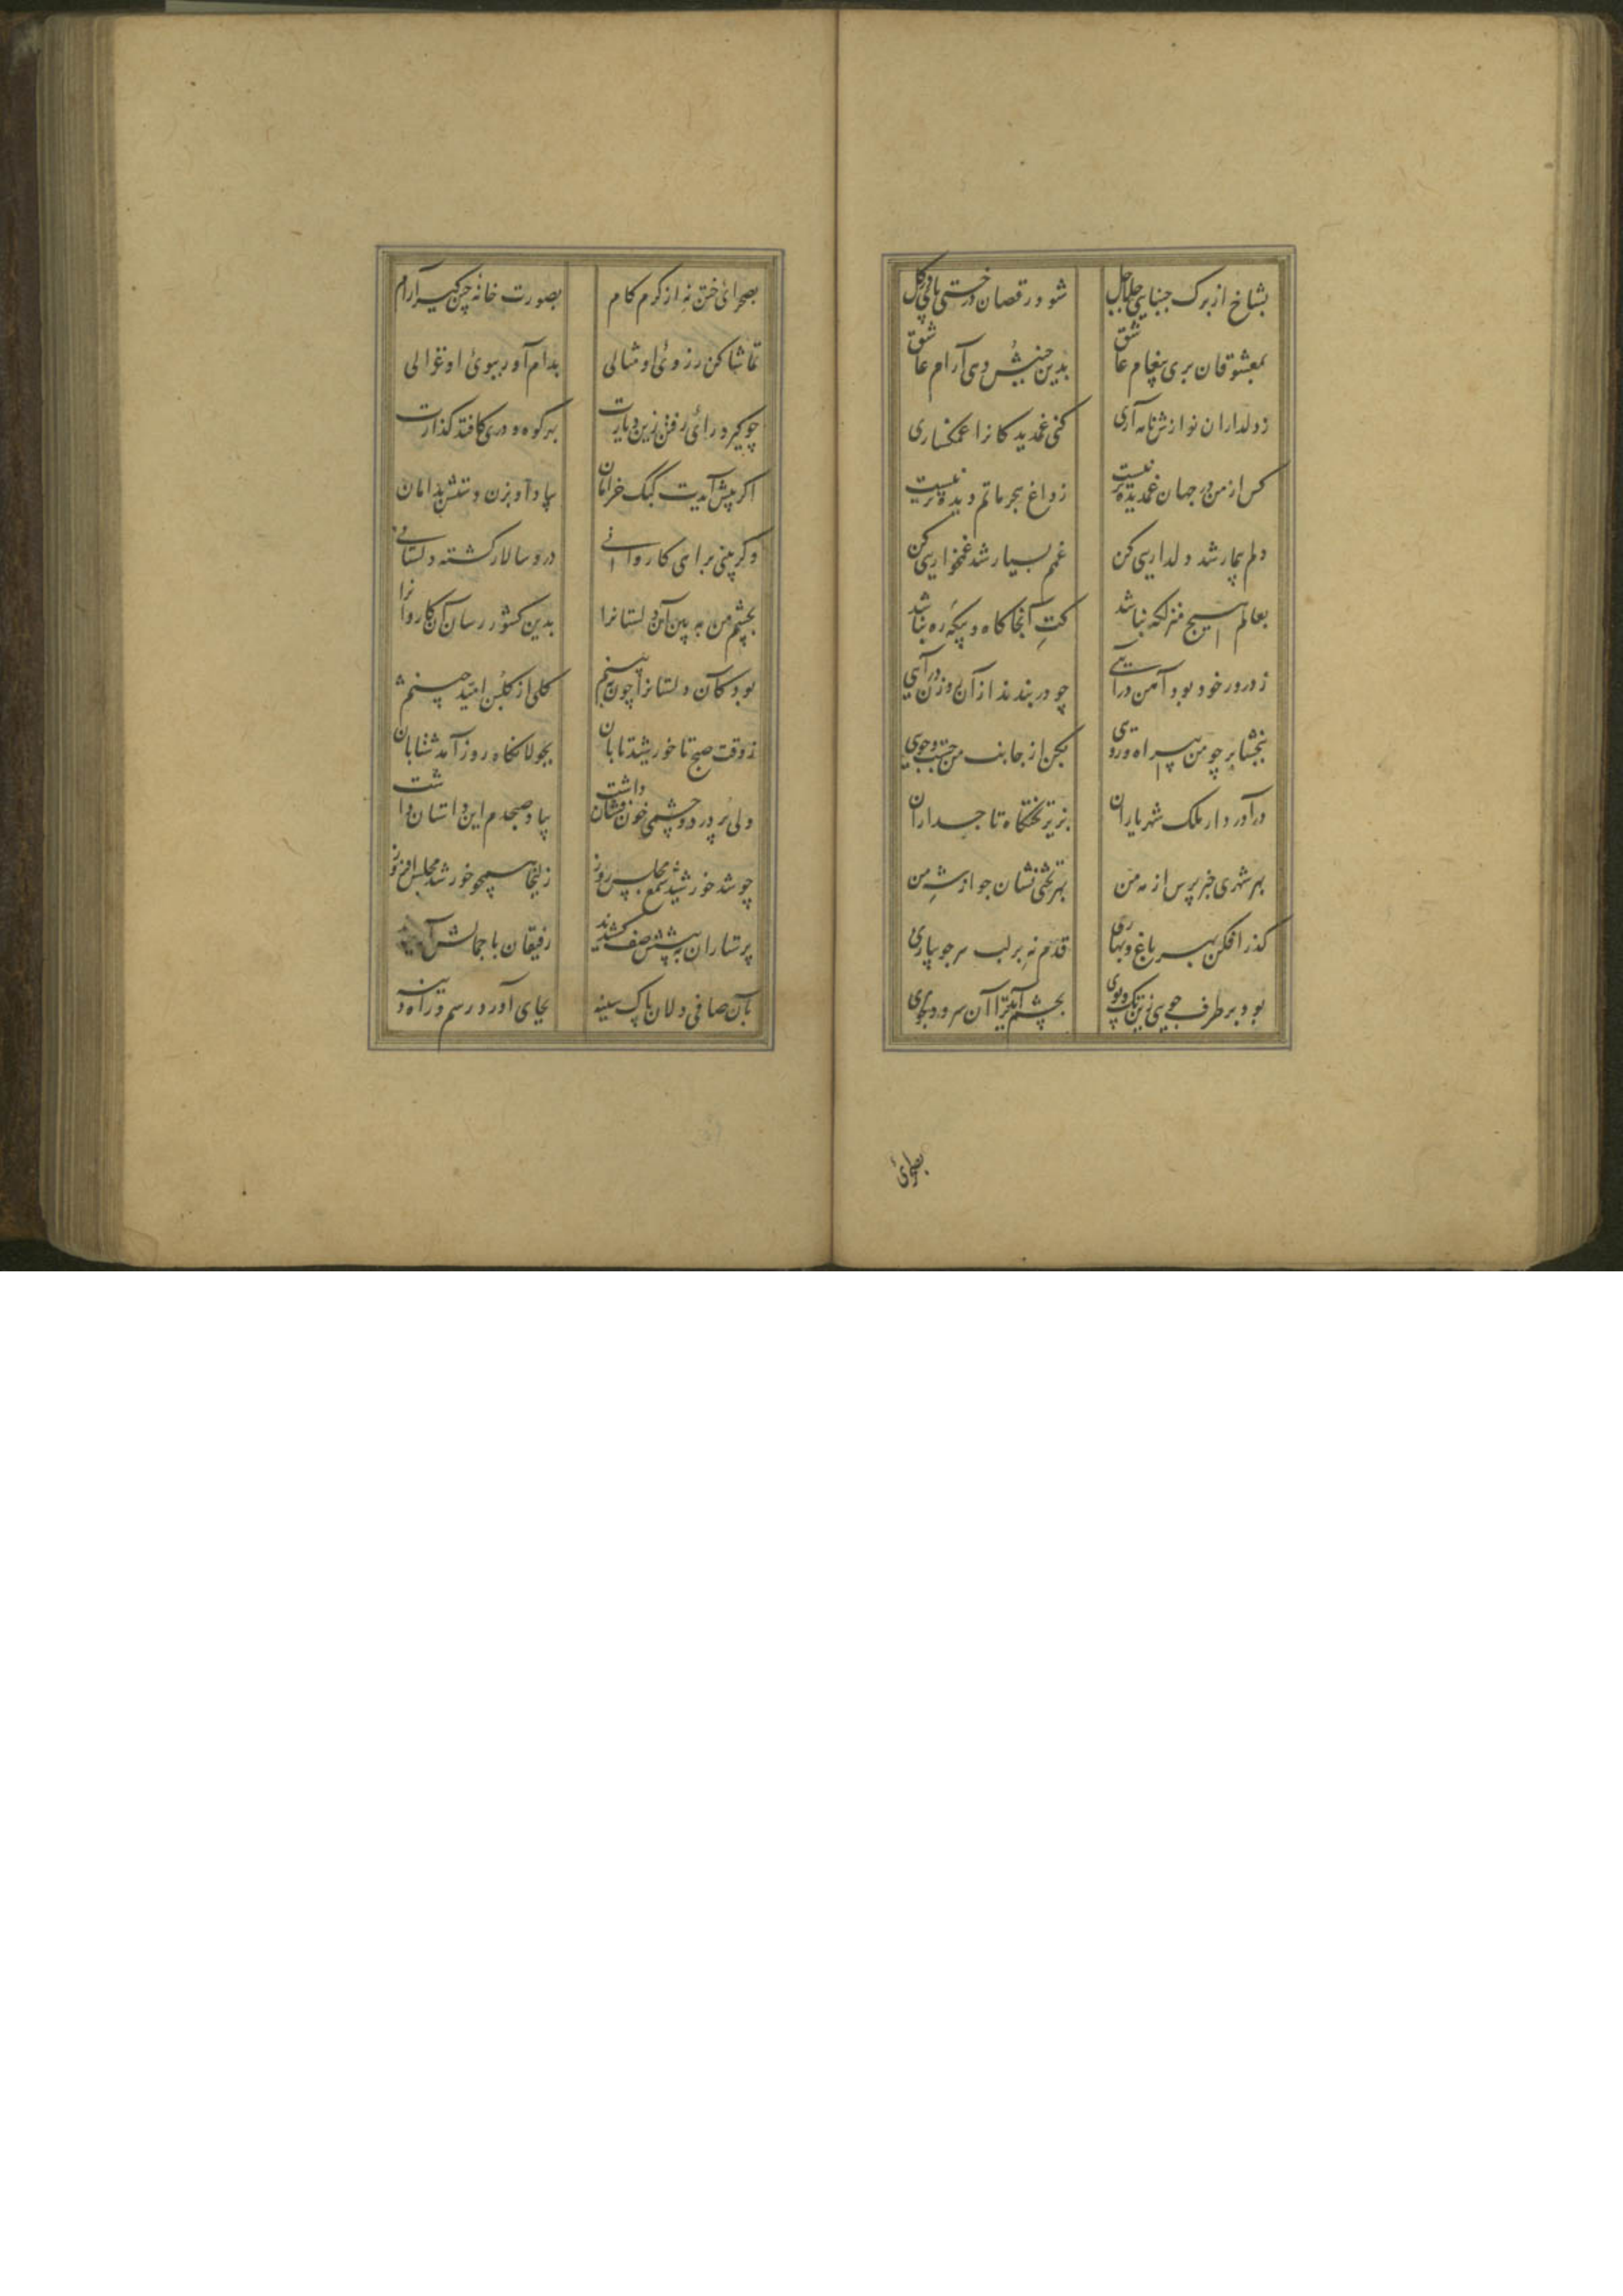 بشاخ از برک جنبانی جلاجل
شود رقصان درختی پای در کل
بمعشوقان بری پیغام عاشق
بدین جنبش دهی آرام عاشق
ز دلداران نوازش نامه آری
کنی غمدیدکانرا غمکساری
کس از من در جهان غمدیده تر نیست
ز داغ هجر ماتم دیده تر نیست
دلم بیمار شد دلداریی کن
غمم بسیار شد غمخواریی کن
بعالم هیچ منزلکه نباشد
کت آنجا کاه و بیکه ره نباشد
ز در ور خود بود آهن درآیی
چو در بندند از آن روزن درآیی
ببخشا بر چو من بی راه و رویی
بکن از جانب من جست و جویی
درآ در دار ملک شهریاران
بزیر تختکاه تاجداران
بهر شهری خبر پرس از مه من
بهر تختی نشان جو از شه من
کذر افکن بهر باغ و بهاری
قدم نه بر لب هر جویباری
بود بر طرف جویی زین تک و پوی
بچشم آید ترا آن سرو دلجوی
بصحرای
بصحرای ختن نه از کرم کام
بصورت خانه چین کیر آرام
تماشا کن ز روی او مثالی
بدام آور ببوی او غزالی
چو کیرد رای رفتن زین دیارت
بهر کوه و دری کافتد کذارت
اکر پیش آیدت کبک خرامان
بیاد او بزن دستش بدامان
وکر بینی براهی کاروانی
درو سالار کشته دلستانی
بچشم من ببین آن دلستانرا
بدین کشور رسان آن کاروانرا
بود کان دلستانرا چون ببینم
کلی از کلبن امید چینم
ز وقت صبح تا خورشید تابان
بجولانکاه روز آمد شتابان
دلی پر درد و چشمی خون فشان داشت
بباد صبحدم این داستان داشت
چو شد خورشید شمع مجلس روز
زلیخا همچو خورشید مجلس افروز
پرستاران به پیشش صف کشیدند
رفیقان با جمالش
بآن صافی دلان پاک سینه
بجای آورد رسم و راه دینه